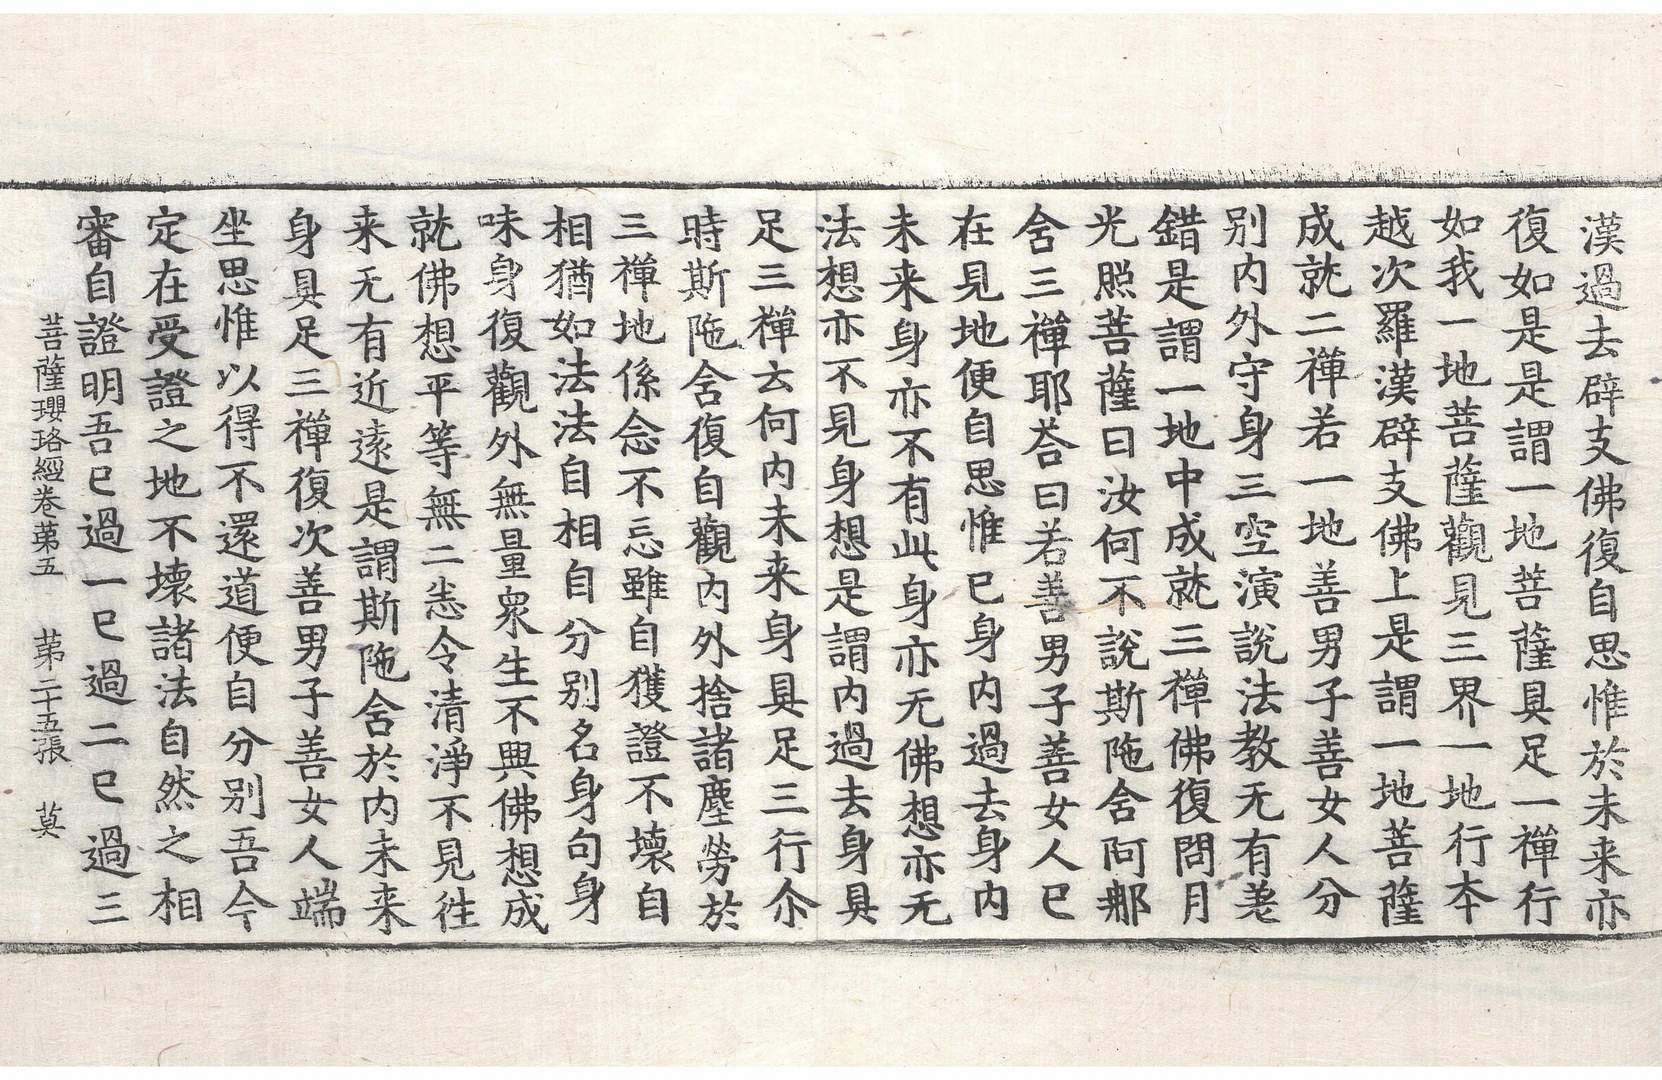 漢過去辟支佛復自思惟於未来亦
復如是是謂一地菩薩具足一禪行
如我一地菩薩觀見三界一地行本
越次羅漢辟支佛上是謂一地菩薩
成就二禪若一地善男子善女人分
别内外守身三空演說法教无有差
錯是謂一地中成就三禪佛復問月
光照菩薩曰汝何不說斯陁含阿那
含三禪耶荅曰若善男子善女人已
在見地便自思惟已身内過去身内
未来身亦不有此身亦无佛想亦无
法想亦不見身想是謂内過去身具
足三禪云何内未来身具足三行尒
時斯陁含復自觀内外捨諸塵勞於
三禪地係念不忘雖自獲證不壞自
相猶如法法自相自分别名身句身
味身復觀外無量衆生不興佛想成
就佛想平等無二恙令清淨不見徃
来无有近逺是謂斯陁含於内未来
身具足三禪復次善男子善女人端
坐思惟以得不還道便自分别吾今
定在受證之地不壞諸法自然之相
審自證明吾已過一已過二已過三
菩薩瓔珞經卷苐五　苐二十五張　莫